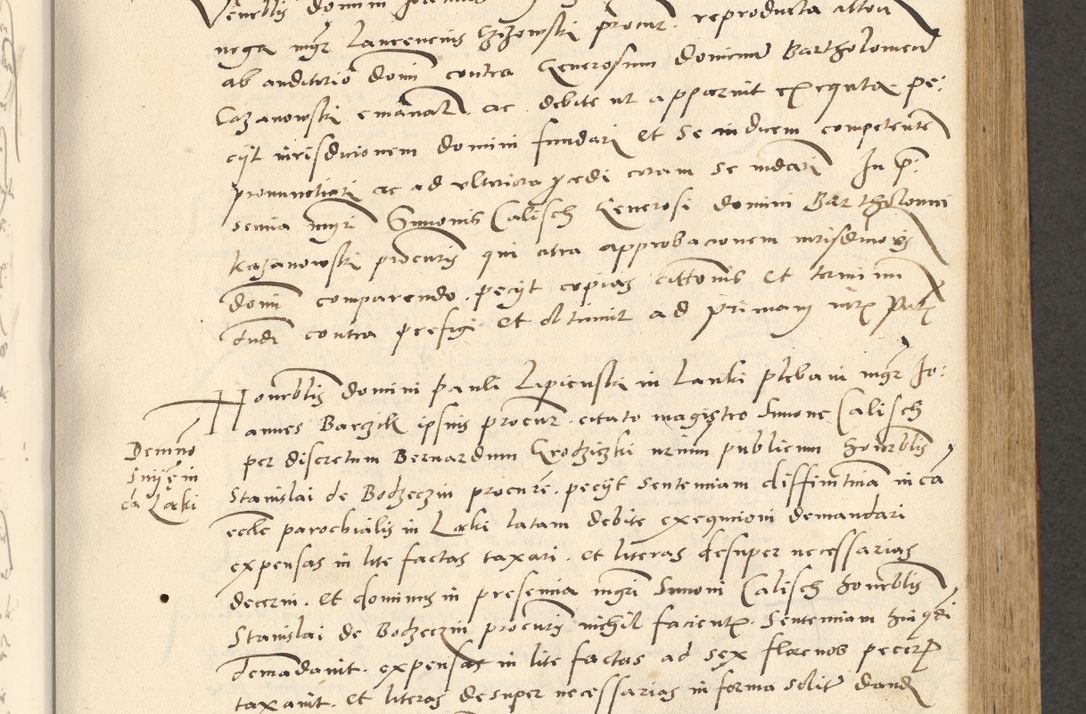 Venerblis domini
nega mgr Laurencius Gizowski procur. reproducta
ab auditorio domi contra Generosum dominum Bartholomeum
Cazanowski emanat. ac debite ut apparuit exequuta pe:
cyt iurisdicionem domini fundari Et se iudicem competente
pronunctiari ac ad ulteriora pcedi coram se mdari In p:
sencia mgri Simonis Calisch Generosi domini Bartholomei
Kazanowski procuris qui citra approbacionem iurisdicionis
domi comparendo. pecyt copias cittonis Et terminum
dndi contra prefigi Et obtinuit ad primam iurx Partx
Honrblis domini Pauli Lapienski in Lanki plebani mgr Jo:
annes Barczik ipsius procur. citato magistro Simone Calisch
per discretum Bernardum Grodziczki nrium publicum honrblis
Stanislai de Bodzeczin procure. pecyt Sentenciam diffinitiua in ca
eccle parochialis in Laki latam debite exequcioni demandari
expensas in lite factas taxari. Et literas desuper necessarias
decerni. Et dominus in presencia mgri Simoni Calisch honrblis
Stanislai de Bodzeczin procuris nichil facientx. Sentenciam
demadauit. expensas in lite factas ad sex florenos pecer
taxauit. Et literas desuper necessarias in forma solit dand
Demno
Sniye in
ca Laki